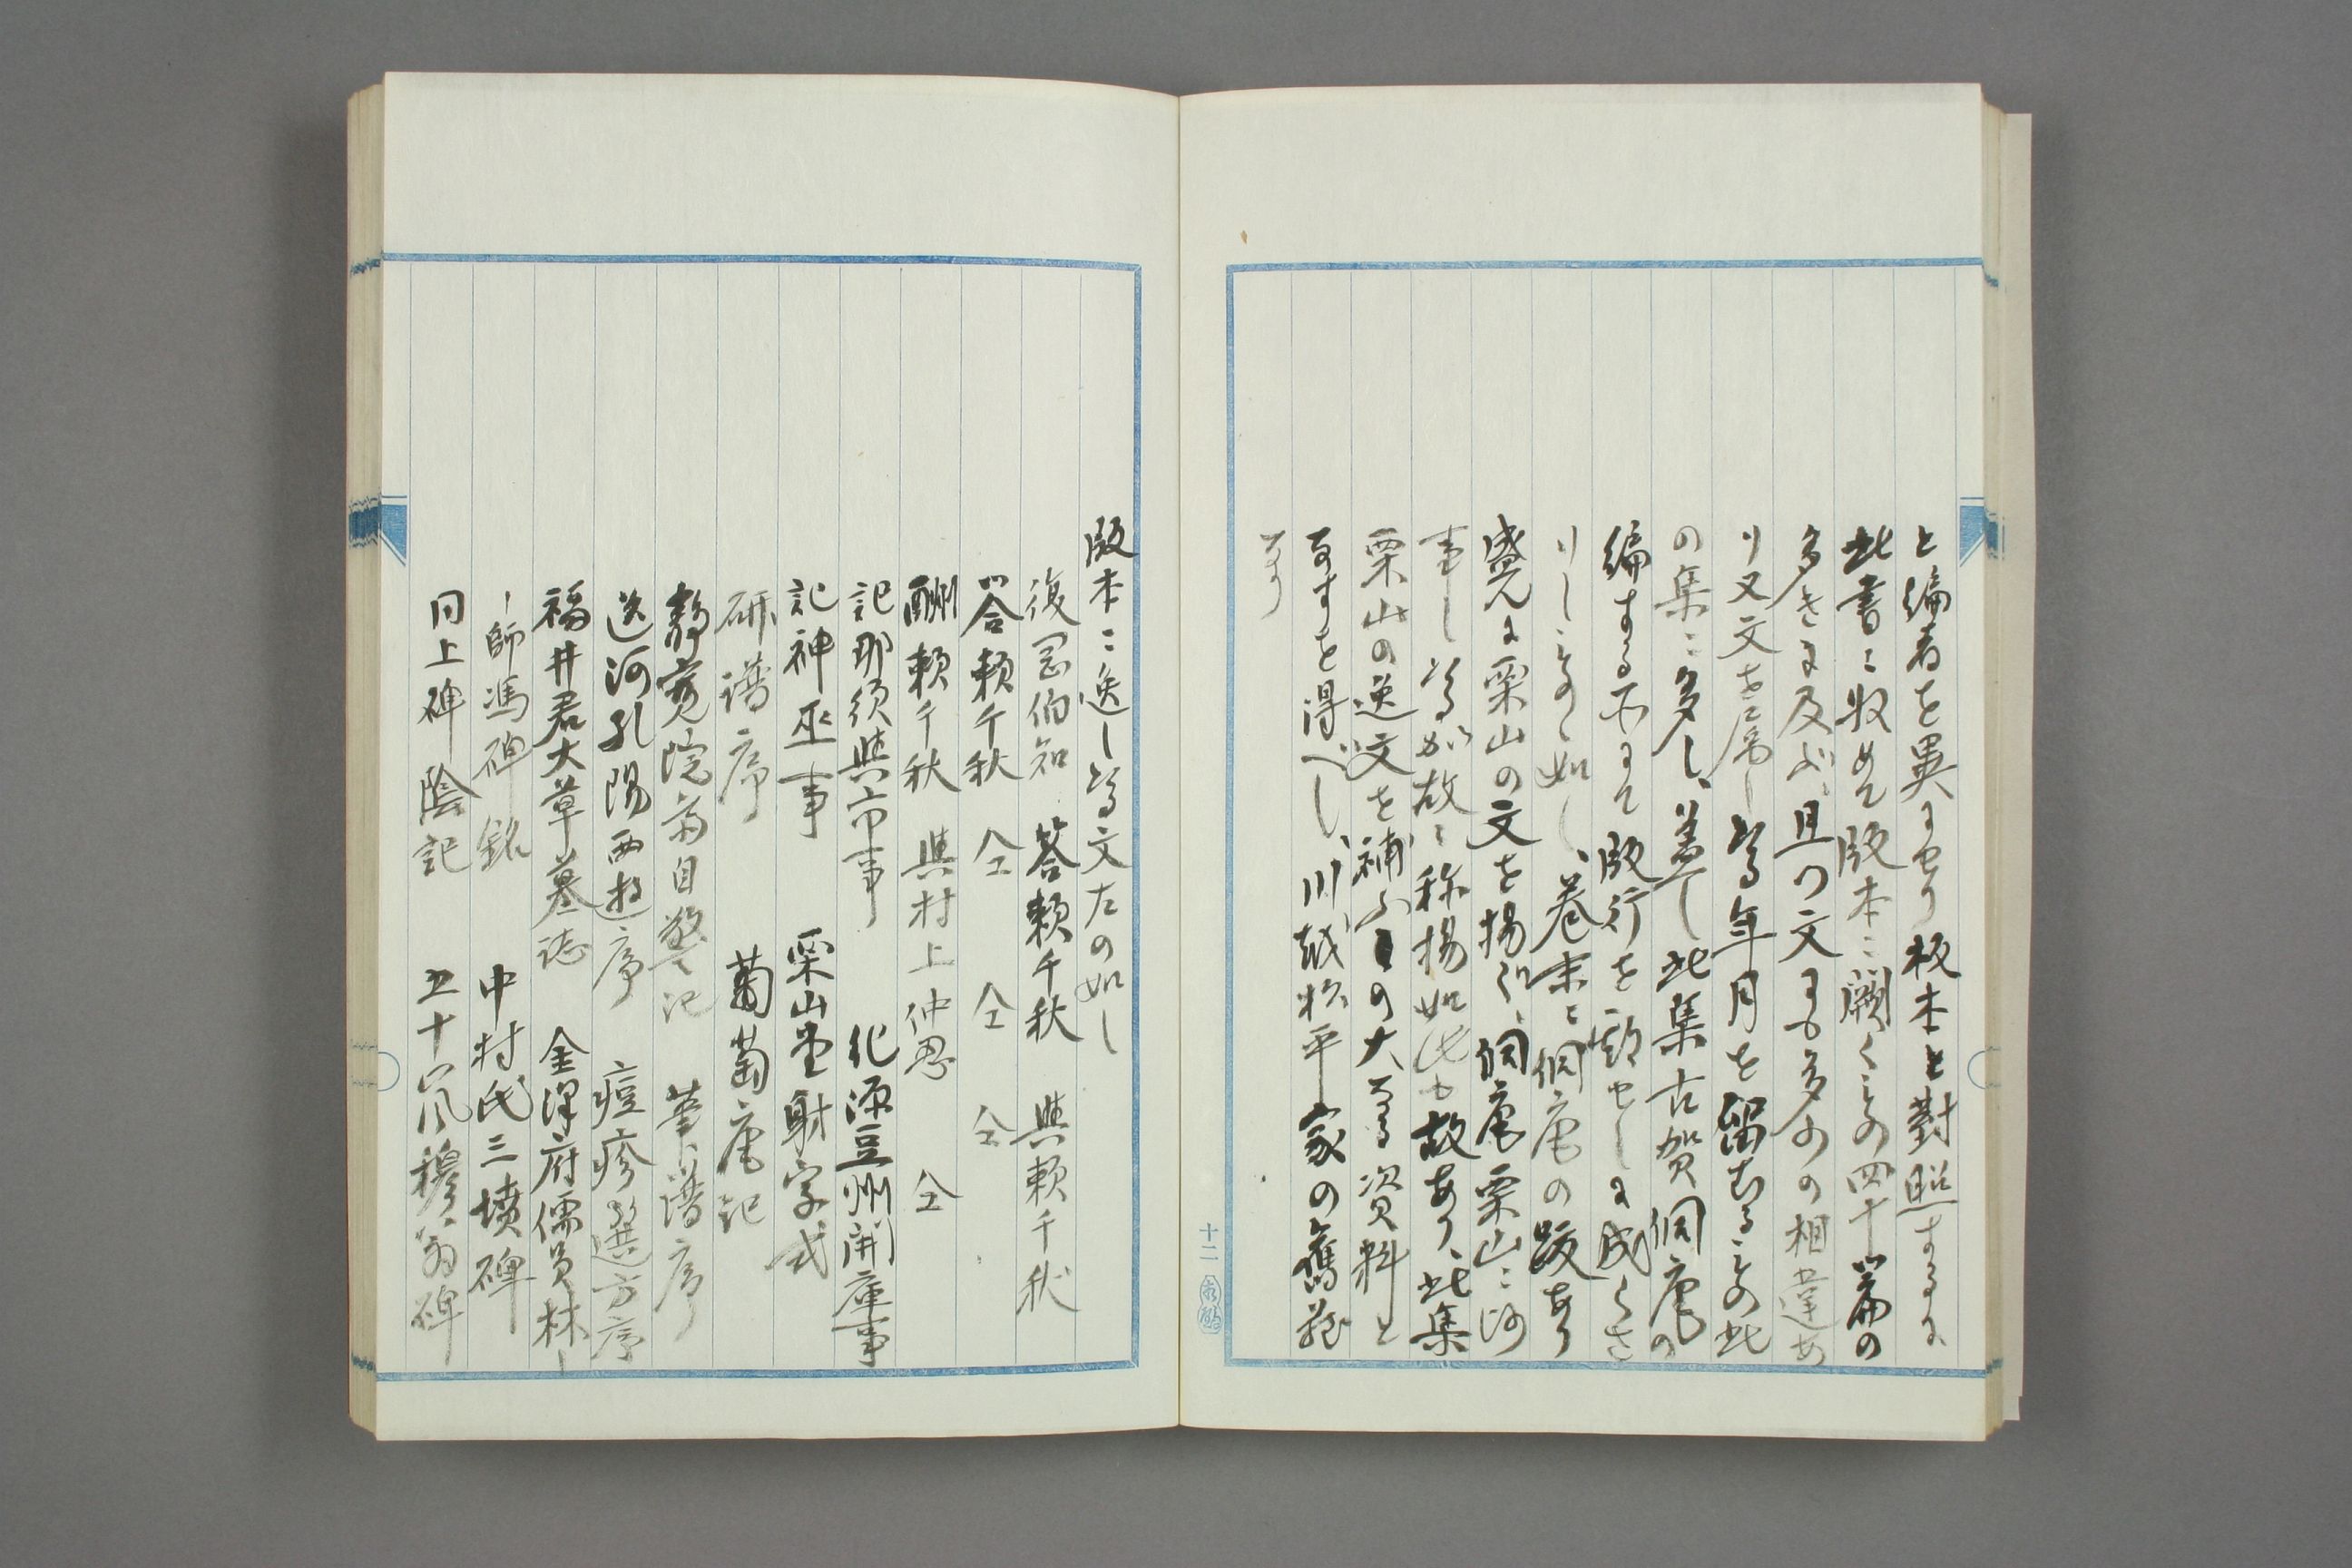 と編者を異にせり板本と對照するに
此書ニ收めて版本ニ闕くもの四十篇の
多きに及ぶ、且つ文にも多少の相違あ
り又文を属し年月を留むるもの此
の集ニ多し、蓋し此集古賀侗庵の
編する所にて版行を願せしに成らさ
りしものゝ如し、巻末ニ侗庵の跋あり
盛んに栗山の文を揚ぐ、侗庵栗山ニ師
事しるが故ニ称揚如此も故あり、此集
栗山の逸文を補ふの大なる資料と
なすを得べし、川越松平家の舊蔵
なり
十二
版本ニ逸しる文左の如し
復岡伯和 答賴千秋 與賴千秋
答賴千秋 仝 仝 仝
酬賴千秋 與村上仲思 仝
記那須與市事 化源豆州開庫事
記神巫事 栗山堂射字式
研譜序 蔔萄庵記
靜寛院斎自警記 筆譜序
送河孔陽西遊序 痘疹選方序
福井君大草墓誌 金澤府儒員林
師馮碑銘 中村氏三墳碑
同上碑陰記 五十嵐穆翁碑